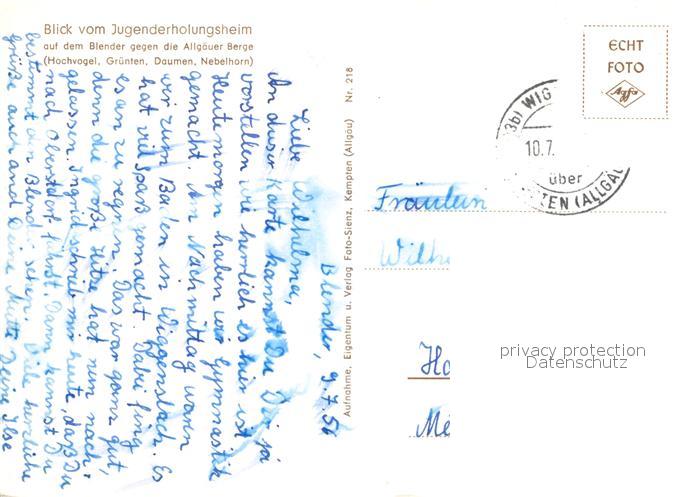 Blick vom Jugenderholungsheim
auf dem Blender gegen die Allgäuer Berge
(Hochvogel, Grünten, Daumen, Nebelhorn)
Blender, 9.7.56
Liebe Wilhelma,
An dieser Karte kannst Du Dir ja
vorstellen wie herrlich es hier ist.
Heute morgen haben wir Gymnastik
gemacht. Am Nachmittag waren
wir zum Baden in Wiggensbach. Es
hat viel Spaß gemacht. Dabei fing
es an zu regnen. Das war ganz gut,
denn die große Hitze hat nun nach-
gelassen. Ingrid schrieb mir heute, daß Du
nach Oberstdorf fährst. Dann kannst Du
bestimmt den Blender sehen. Dich herzliche
grüße auch and Deine Mutti Deine Ilse
Aufnahme, Eigentum u. Verlag Foto-Sienz, Kempten (Allgäu) Nr. 218
ECHT
FOTO
Agfa
(13b) WIG
10.7.
über
TEN (ALLGÄU
Fräulein
Wilh
Ho
Me
privacy protection
Datenschutz